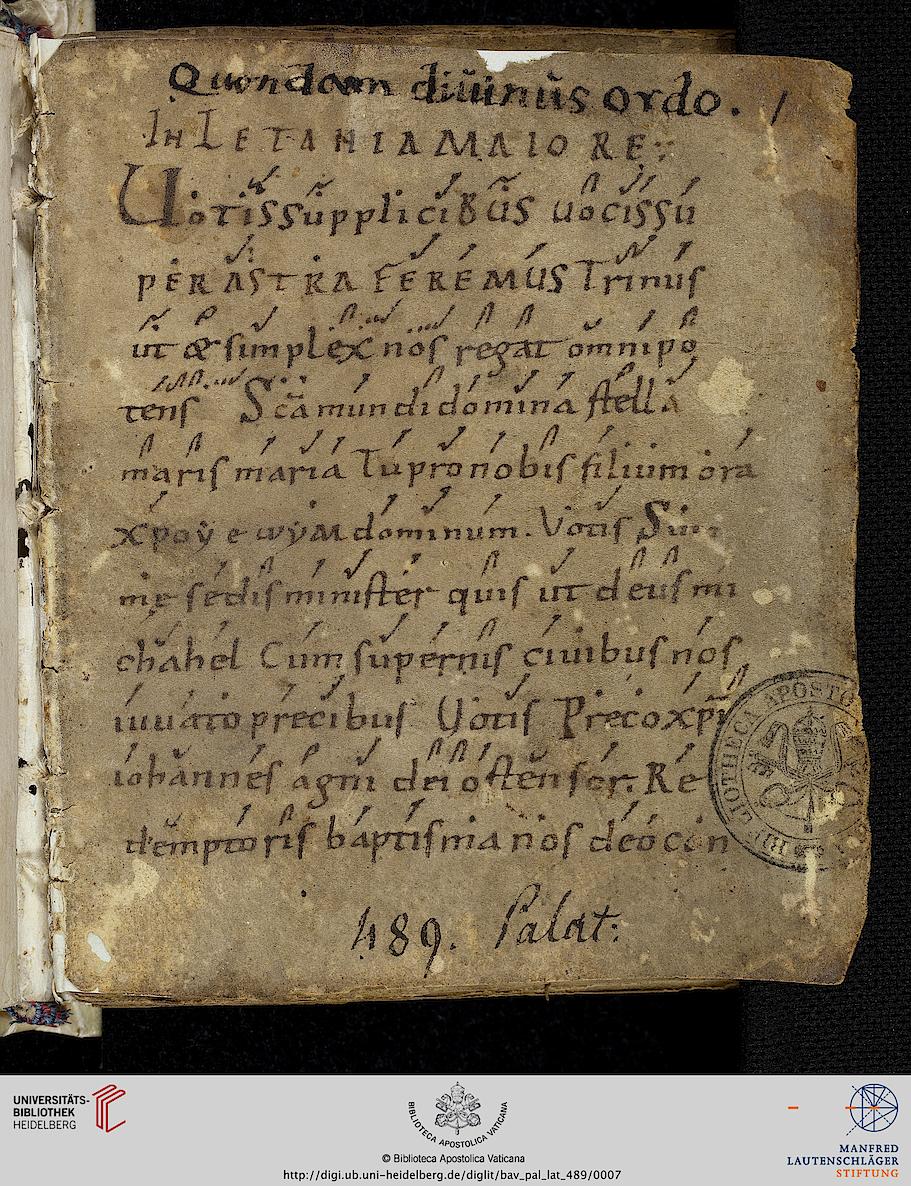 Quondam diuinus ordo. 1
IN LETANIA MAIORE:
Uotis supplicibus uocis su
per astra feremus Trinus
ut & simplex nos regat omnipo
tens Sca mundi domina stella
maris maria Tu pro nobis filium ora
dominum. Votis Sum
me sedis minister quis ut deus mi
chahel Cum supernis ciuibus nos
iuuato precibus Votis Preco xpi
iohannes agni dei ostensor. Re
demptoris baptisma nos deo con
489. Palat:
BIBLIOTHECA APOSTO
UNIVERSITÄTS-
BIBLIOTHEK
HEIDELBERG
BIBLIOTECA APOSTOLICA VATICANA
© Biblioteca Apostolica Vaticana
http://digi.ub.uni-heidelberg.de/diglit/bav_pal_lat_489/0007
MANFRED
LAUTENSCHLÄGER
STIFTUNG